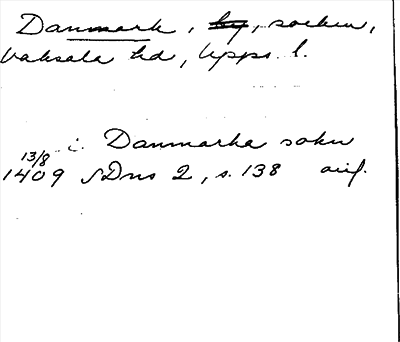 Danmark, by, socken,
Vaksala hd, Upps. l.
i Danmarka sokn
13/8
1409 SDns 2, s. 138 orig.